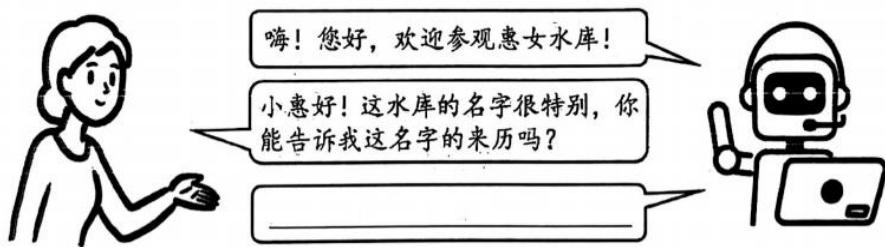 嗨！您好，欢迎参观惠女水库！
小惠好！这水库的名字很特别，你
能告诉我这名字的来历吗？